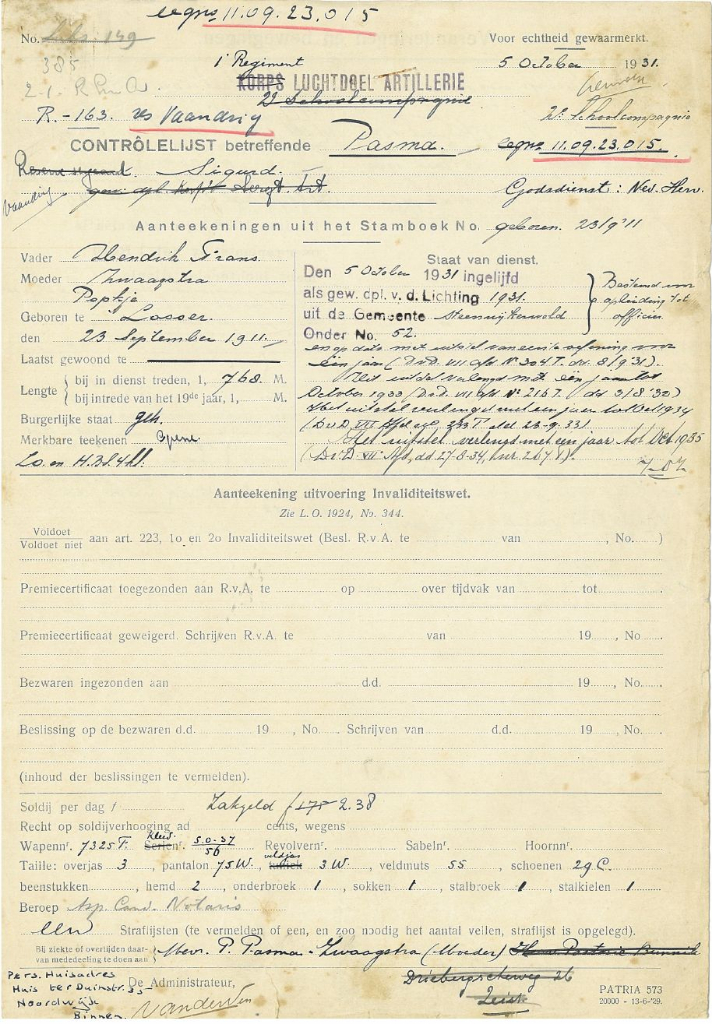 egns 11.09.23.015
No. 149
Voor echtheid gewaarmerkt.
385
1e Regiment
5 October 1931.
KORPS LUCHTDOEL ARTILLERIE
2e Schoolcompagnie
R.-163. res Vaandrig
2e Schoolcompagnie
CONTRÔLELIJST betreffende Pasma.
egns 11.09.23.015.
Sigurd.
Vaandrig
Godsdienst: Ned. Herv.
Aanteekeningen uit het Stamboek No. geboren 23/9 '11
Vader Hendrik Frans.
Staat van dienst.
Moeder Zwaagstra
Popkje
Geboren te Losser.
den 23 September 1911.
Laatst gewoond te
Lengte bij in dienst treden, 1, 768 M.
bij intrede van het 19de jaar, 1, M.
Burgerlijke staat geh.
Merkbare teekenen Geene
Lo. en H.B.S. 4 kl.
Den 5 October 1931 ingelijfd
als gew. cpl. v. d. Lichting 1931.
uit de Gemeente Steenwijkerwold
Onder No. 52.
Bestemd voor
opleiding tot
officier
en op dato met uitstel van eerste oefening voor
één jaar (D.v.D. VII afd No 304 T. dd. 8/9 '31).
Het uitstel verlengd met één jaar tot
October 1933 (D.v.D. VII afd No 216 T. dd 3/8 '30)
Het uitstel verlengd met een jaar tot Oct 1934
(D.v.D. VII Afd no 333 T. dd 23-9-33).
Het uitstel verlengd met een jaar tot Oct 1935
(D.v.D. VII Afd, dd 27-8-34, nr 267 V).
Aanteekening uitvoering Invaliditeitswet.
Zie L.O. 1924, No. 344.
Voldoet
Voldoet niet aan art. 223, 1o en 2o Invaliditeitswet (Besl. R.v.A. te van , No. )
Premiecertificaat toegezonden aan R.v.A. te op over tijdvak van tot
Premiecertificaat geweigerd. Schrijven R.v.A. te van 19 , No
Bezwaren ingezonden aan d.d. 19 , No.
Beslissing op de bezwaren d.d. 19 , No. Schrijven van d.d. 19 , No.
(inhoud der beslissingen te vermelden).
Soldij per dag f Zakgeld f 175 2.38
Recht op soldijverhooging ad cents, wegens
Wapennr. 7325 T. Serienr. 50-37 56 Revolvernr. Sabelnr. Hoornnr.
Taille: overjas 3, pantalon 75 W., veldjas 3 W., veldmuts 55, schoenen 29 C.
beenstukken , hemd 2, onderbroek 1, sokken 1, stalbroek 1, stalkielen 1
Beroep Asp. Cand. Notaris
een Straflijsten (te vermelden of een, en zoo noodig het aantal veilen, straflijst is opgelegd).
Bij ziekte of overlijden daarvan mededeeling te doen aan Mevr. P. Pasma-Zwaagstra (Moeder)
Driebergscheweg 26
Zeist
Pers. Huisadres
Huis ter Duinstr. 35
Noordwijk
Binnen
De Administrateur,
PATRIA 573
20000 - 13-6-'29.